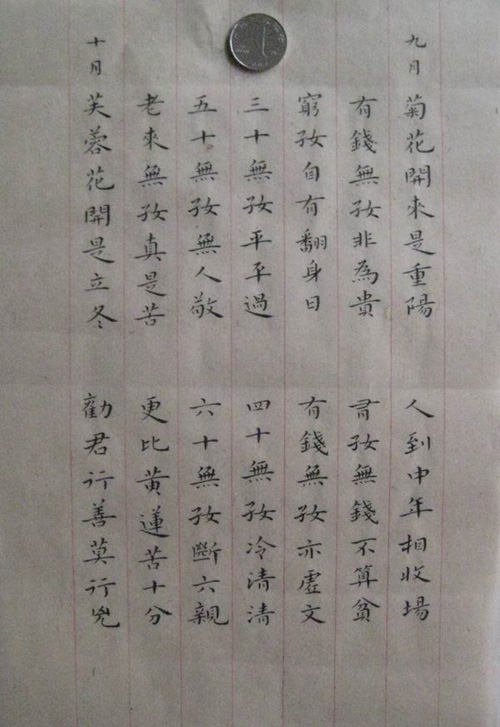 九月 菊花開來是重陽 人到中年相收場
有錢無孜非為貴 有孜無錢不算貧
窮孜自有翻身日 有錢無孜亦虛文
三十無孜平平過 四十無孜冷清清
五十無孜無人敬 六十無孜斷六親
老來無孜真是苦 更比黃蓮苦十分
十月 芙蓉花開是立冬 勸君行善莫行兇